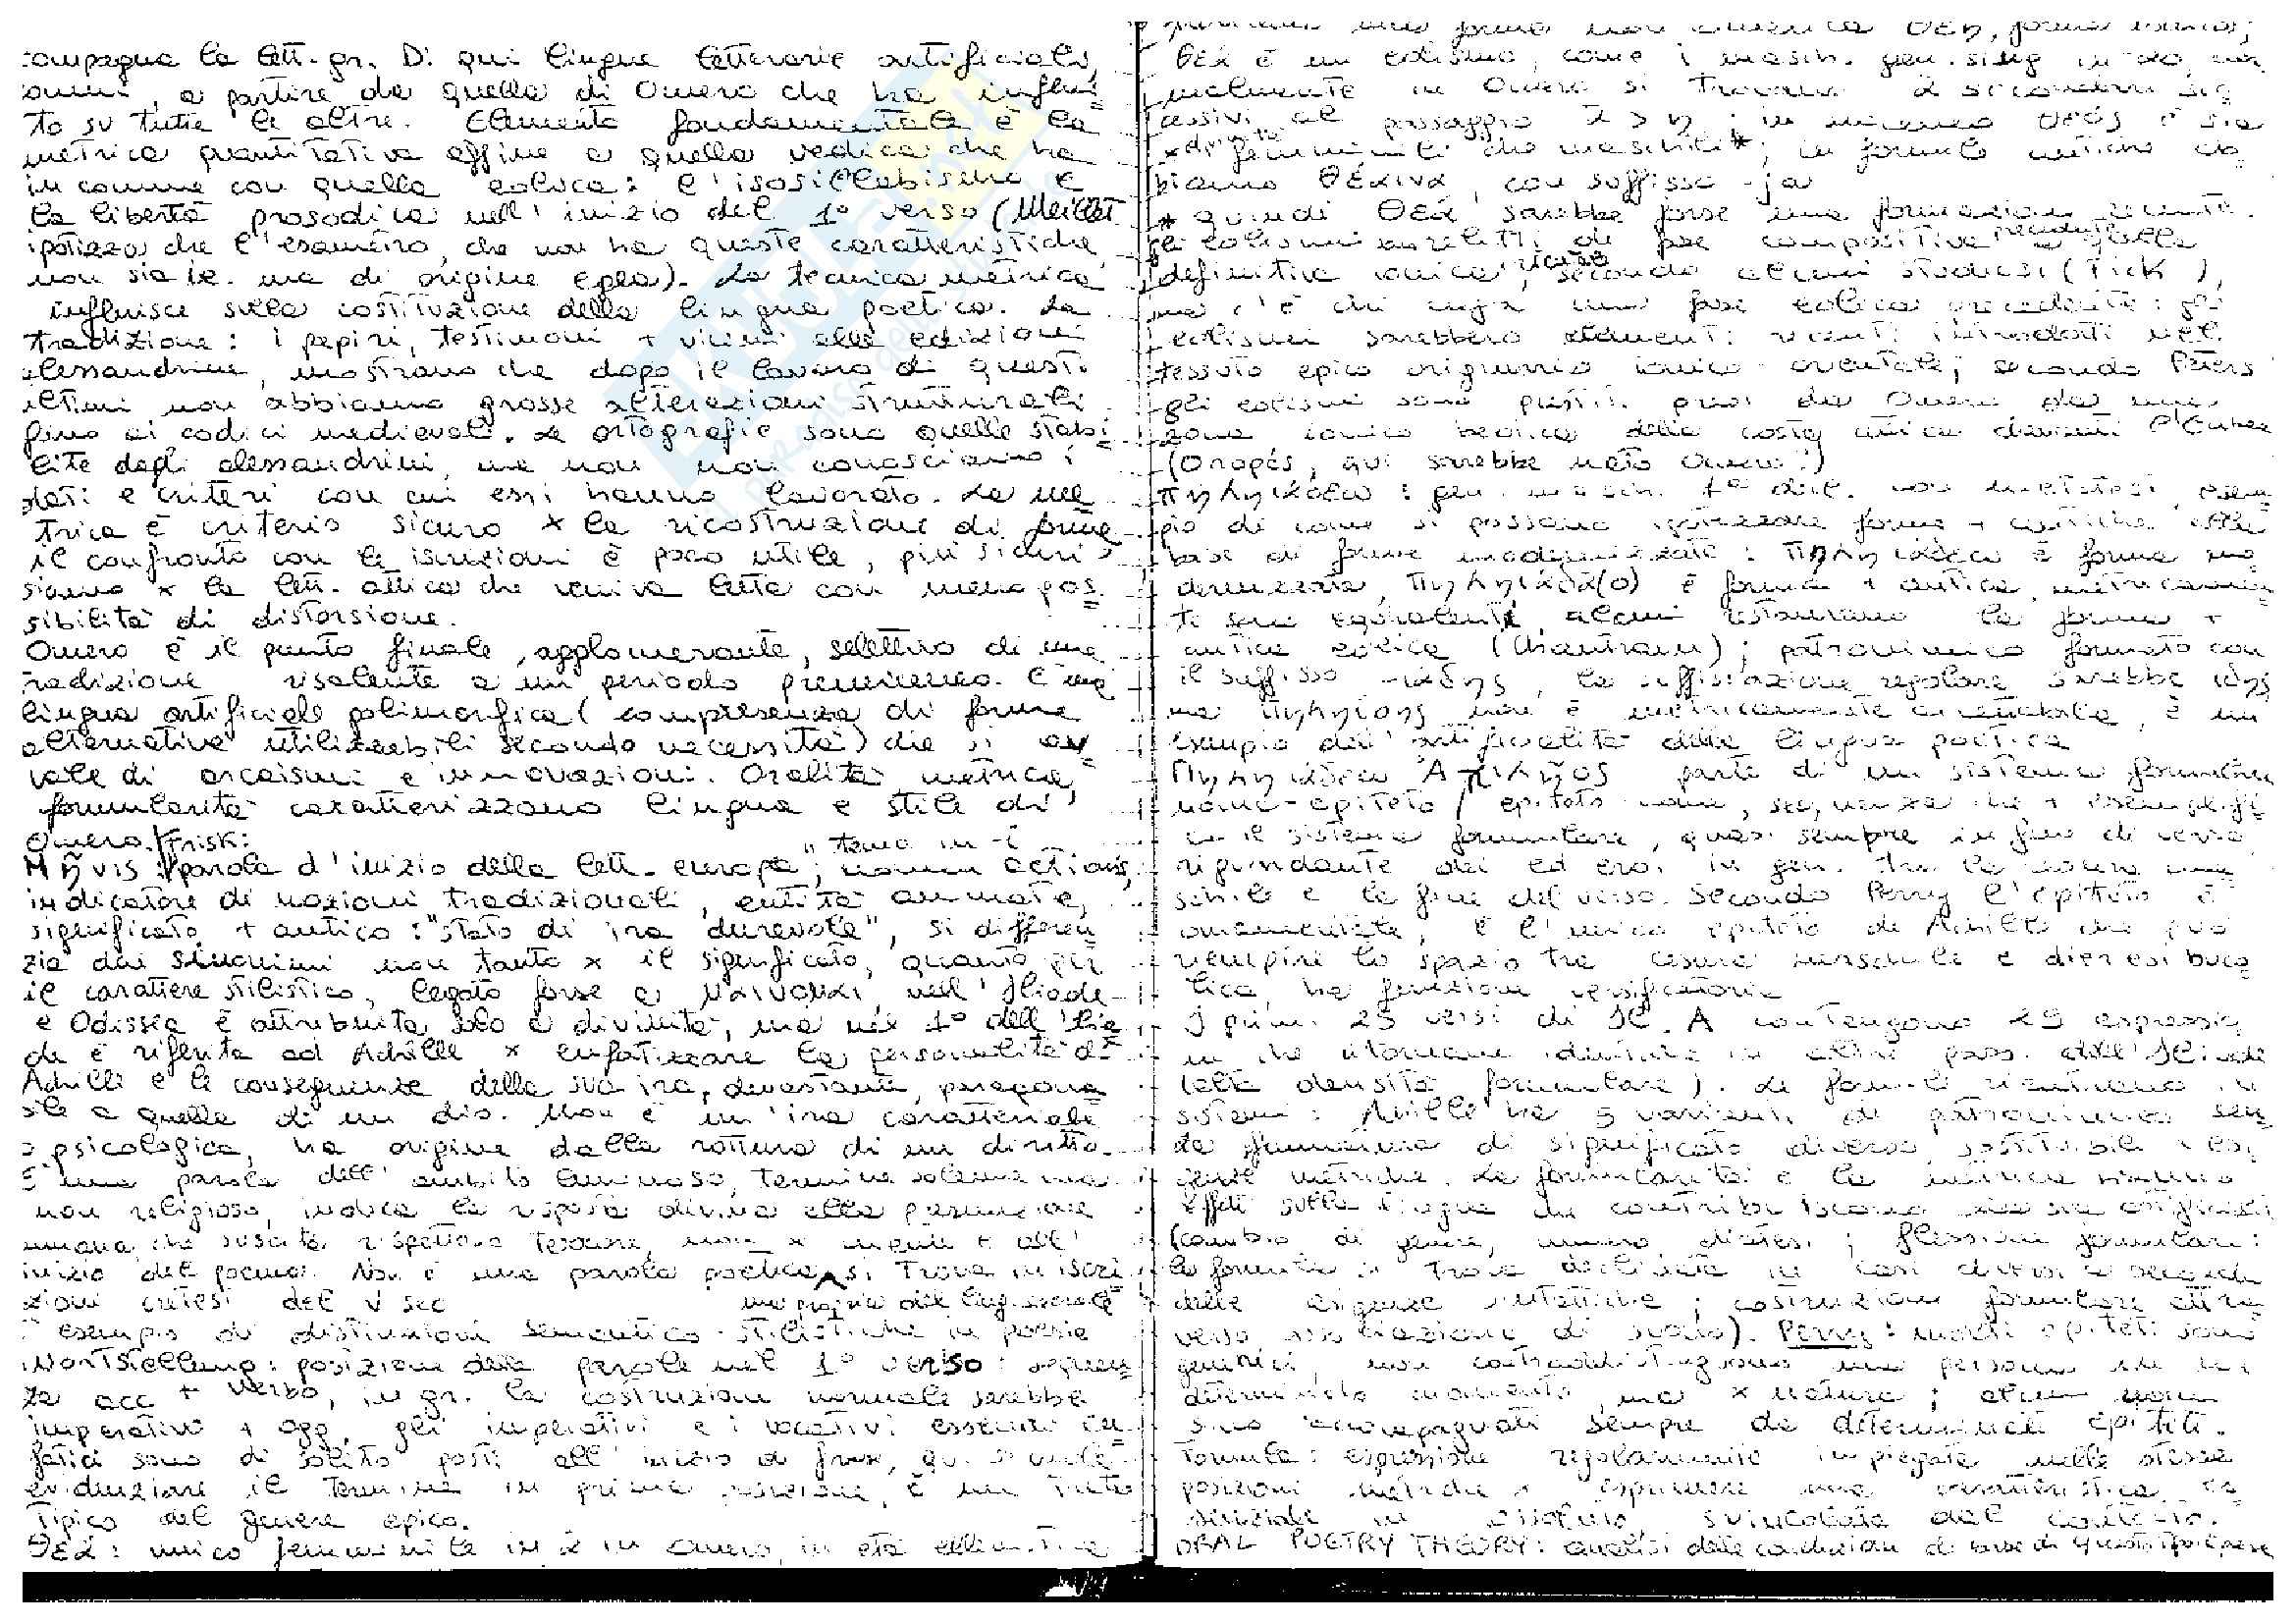 compagna la lett. gr. Di qui lingue letterarie artificiali,
, a partire da quella di Omero che ha influi=
to su tutte le altre. Elemento fondamentale è la
metrica quantitativa affine a quella vedica che ha
in comune con quella eolica: l'isosillabismo e
la libertà prosodica nell'inizio del 1° verso (Meillet
ipotizza che l'esametro, che non ha queste caratteristiche,
non sia ie. ma di origine egea). La tecnica metrica
influisce sulla costituzione della lingua poetica. La
tradizione: i papiri, testimoni + vicini alle edizioni
alessandrine, mostrano che dopo il lavoro di questi
ultimi non abbiamo grosse alterazioni strutturali
fino ai codici medievali. Le ortografie sono quelle stabi=
lite dagli alessandrini, ma non non conosciamo i
dati e criteri con cui essi hanno lavorato. La me
trica è criterio sicuro x la ricostruzione di forme
il confronto con le iscrizioni è poco utile, più sicuri
siamo x la lett. attica che veniva letta con meno pos.
sibilità di distorsione.
Omero è il punto finale, agglomerante, selettivo di una
tradizione risalente a un periodo premiceneo. È una
lingua artificiale polimorfica (compresenza di forme
alternative utilizzabili secondo necessità) che si av
vale di arcaismi e innovazioni. Oralità metrica,
formularità caratterizzano lingua e stile di
Omero. Frisk: tema in -i
Μῆνις: parola d'inizio della lett. europea; nomen actionis,
indicatore di nozioni tradizionali, entità animate,
significato + antico: "stato di ira durevole", si differen
zia dai sinonimi non tanto x il significato, quanto per
il carattere stilistico, legato forse a μαίνομαι, nell'Iliade
e Odissea è attribuita solo a divinità, ma nel 1° dell'Ilia
de è riferita ad Achille x enfatizzare la personalità di
Achille e le conseguenze della sua ira, devastante, paragona
bile a quella di un dio. Non è un'ira caratteriale
o psicologica, ha origine dalla rottura di un diritto.
È una parola dell'ambito luminoso, termine solenne ma
non religioso, indica la risposta divina alla presunzione
umana, che suscita rispettoso terrore, non x + all'
inizio del poema. Non è una parola poetica, si trova in iscri
zioni cretesi del V sec ma propria del ling. sacrale
esempio di distinzioni semantico-stilistiche in poesia
Wortstellung: posizione delle parole nel 1° verso: sequen
za acc + verbo, in gr. la costruzione normale sarebbe
imperativo + ogg. gli imperativi e i vocativi essendo en=
fatici sono di solito posti all'inizio di frase, qui
evidenziare il termine in prima posizione, è un tratto
tipico del genere epico.
θεά: unico femminile in α in Omero, in età ellenistica
una forma non θέη, forma ionica;
θεά è un eolismo, come i masch. gen. sing in αο,
malmente in Omero si trovano α secondari
cessivi al passaggio ᾱ > η; in miceneo θεός è sia
x divinità femminili che maschili*; in formule antiche ab
biamo θέαινα, con suffisso -ja
* quindi θεά sarebbe forse una formazione recente.
gli eolismi di fase compositiva precedente a quella
definitiva ionica, secondo alcuni studiosi (Fick),
ma c'è chi nega una fase eolica precedente: gli
eolismi sarebbero elementi recenti introdotti nel
tessuto epico originario ionico-orientale; secondo Peters
gli eolismi sono presi da Omero da una
zona ionico beotica della costa attica davanti l'Eubea
(Oropós, qui sarebbe nato Omero!)
Πηληιάδεω: gen. masch. 1ª decl. non metatesi, esem
pio di come si possano ipotizzare forme + antiche alla
base di forme modernizzate: Πηληιάδεω è forma mo
dernizzata, Πηληιάδα(ο) è forma + antica, metricamen
te sono equivalenti, alcuni restaurano la forma +
antica eolica (Chantraine); patronimico formato con
il suffisso -ιάδης, la suffissazione regolare sarebbe ίδης
ma Πηληίδης non è metricamente, è un
esempio dell'artificialità della lingua poetica
Πηληιάδεω Ἀχιλῆος parte di un sistema formulare
nome-epiteto / epiteto nome, sequenza che + esemplifi
ca il sistema formulare, quasi sempre in fine di verso
riguardante dei ed eroi in gen. tra la cesura ma
schile e la fine del verso. Secondo Parry l'epiteto è
ornamentale, è l'unico epiteto di Achille che può
riempire lo spazio tra cesura maschile e dieresi buco
lica, ha funzione versificatoria
I primi 25 versi di Il. A contengono 29 espressio
ni che ritornano identiche in altri passi dell'Iliade
(alta densità formulare). Le formule rientrano in
sistemi: Achille ha 5 varianti di patronimico sen
za di significato diverso, sostituibili x esi
genze metriche. La formularità e la metrica hanno
effetti sulla lingua che contribuiscono alla sua artificialità
(cambio di genere, numero diatesi; flessione formulare:
la formula si trova declinata in casi diversi a seconda
delle esigenze sintattiche; costruzioni formulari attra
verso associazione di suono). Parry: molti epiteti sono
generici, non contraddistinguono una persona in un
determinato momento, ma x natura; alcuni nomi
sono accompagnati sempre da determinati epiteti.
Formula: espressione regolarmente impiegata nelle stesse
posizioni metriche x esprimere una caratteristica es
senziale in assoluto svincolata dal contesto.
ORAL POETRY THEORY: analisi delle condizioni di base di questo tipo di poesia